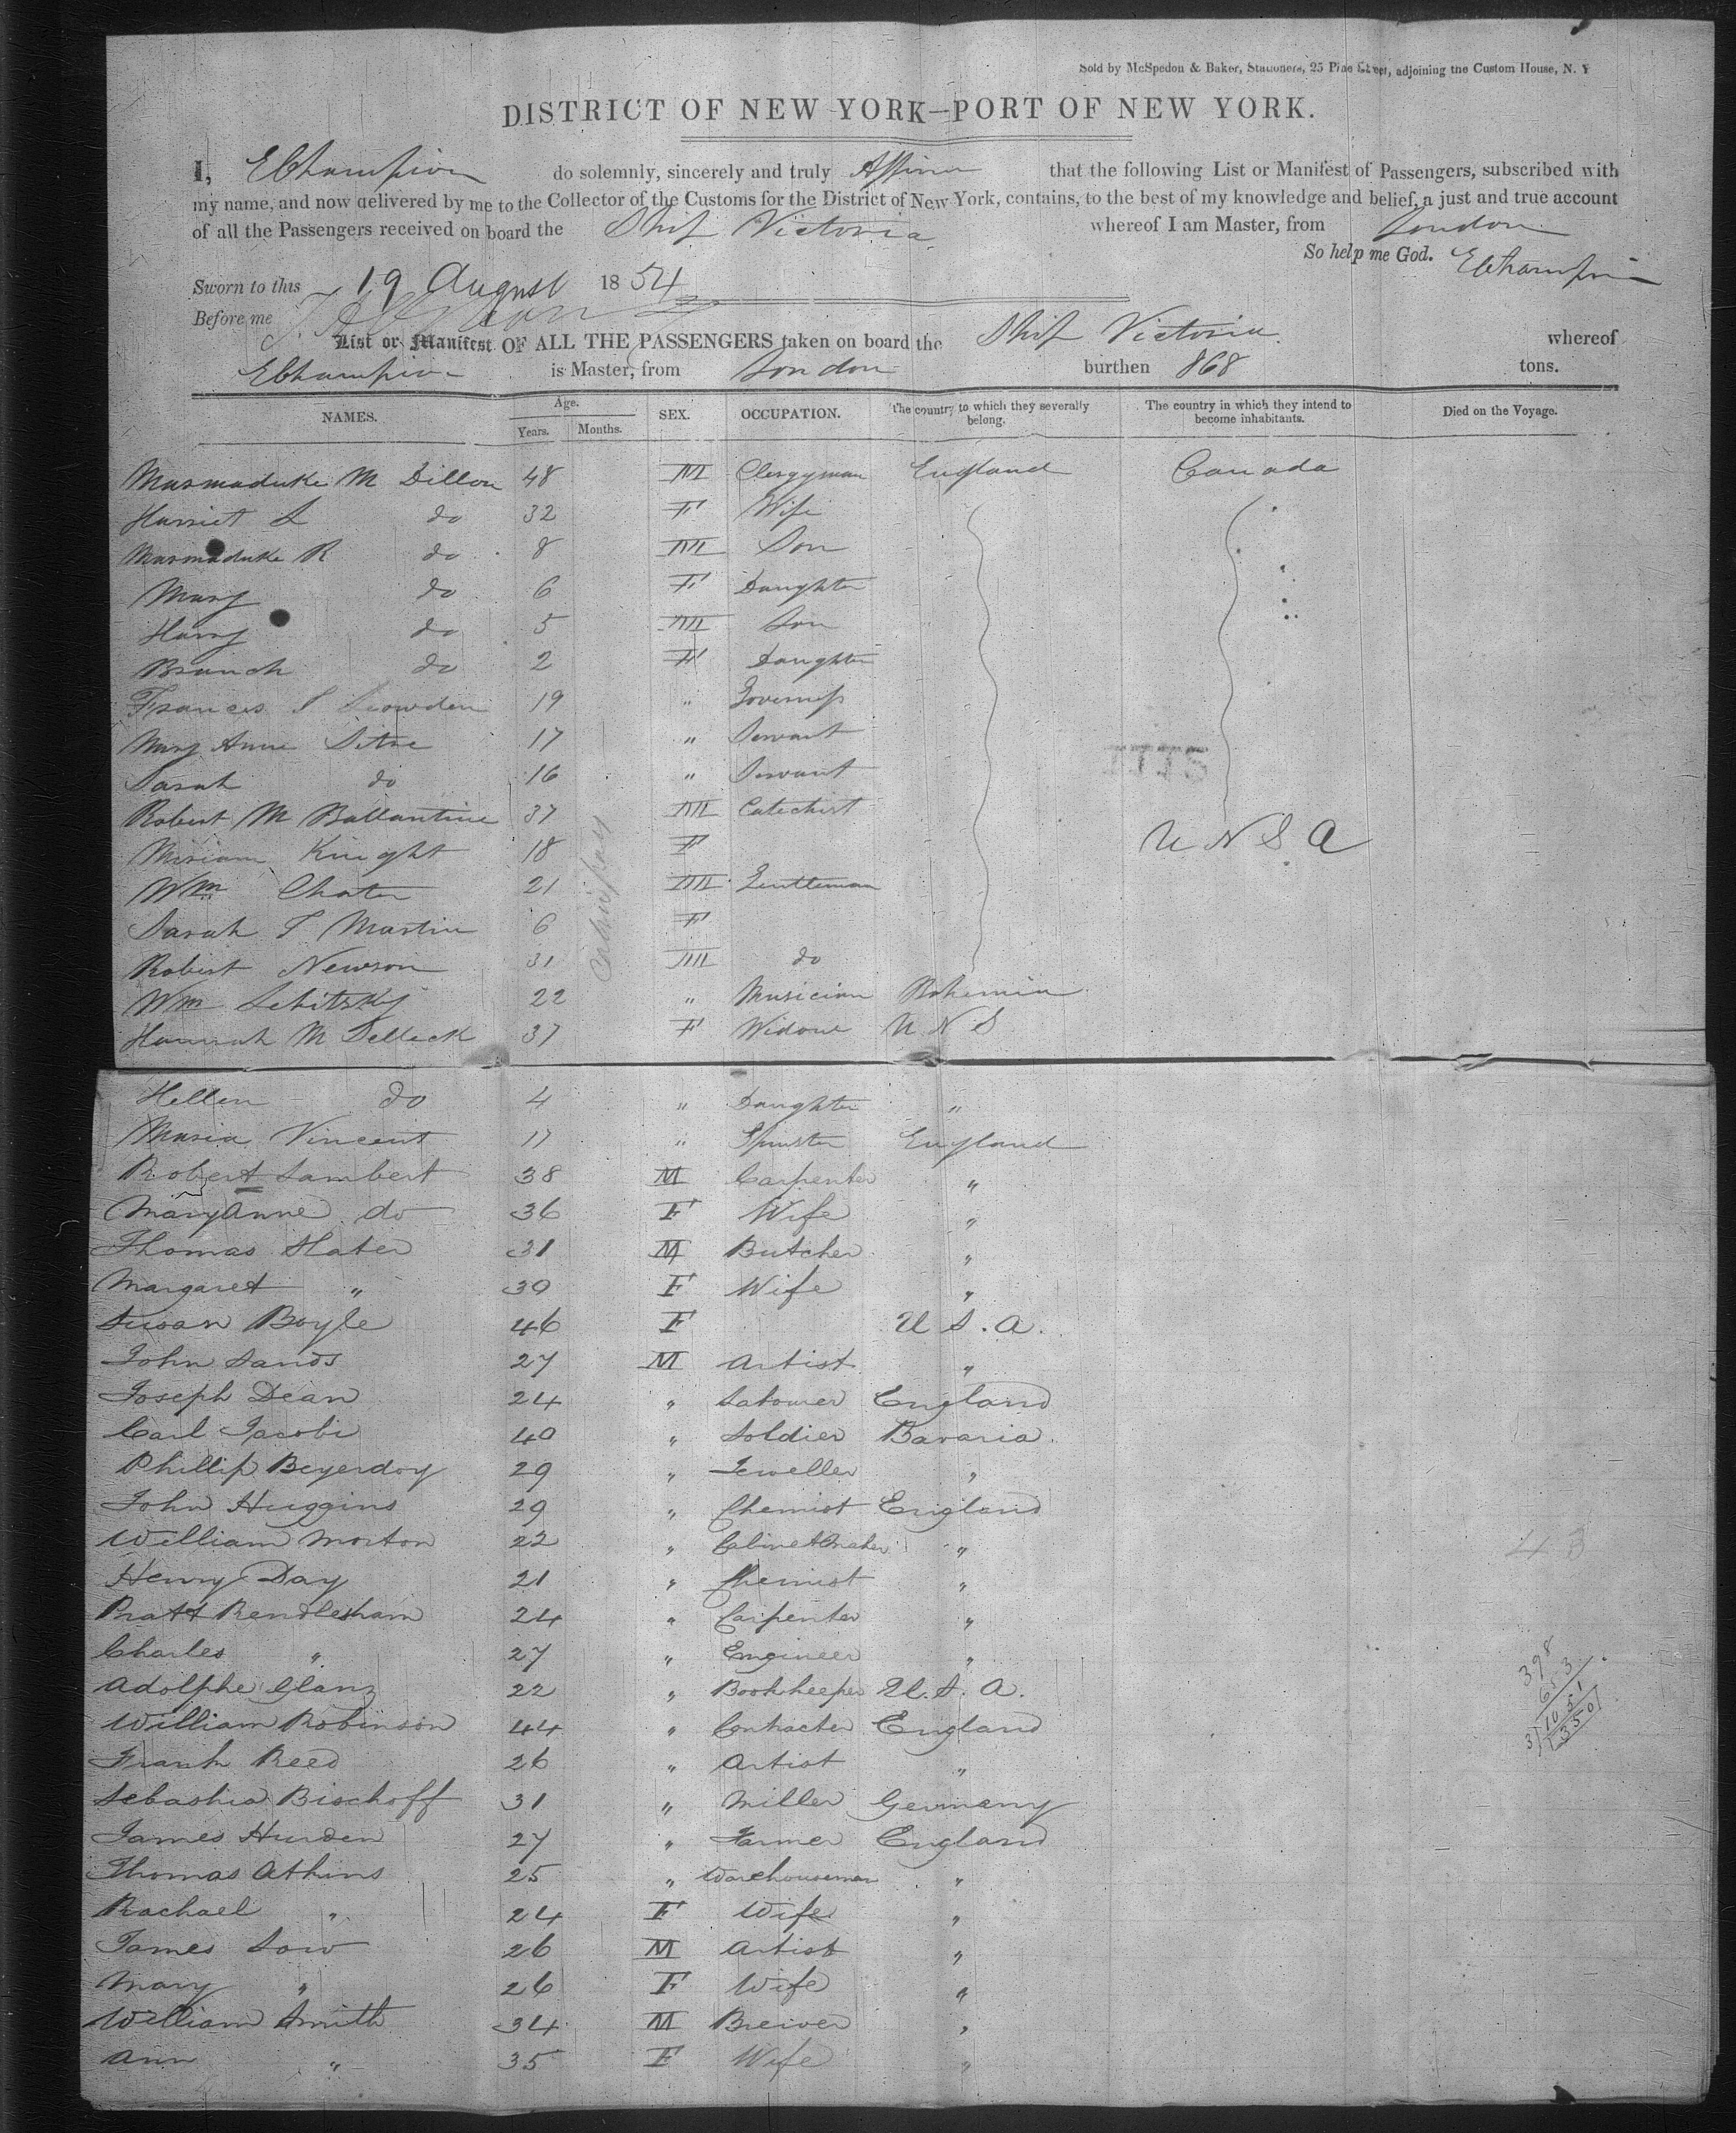 Sold by McSpedon & Baker, Stationers, 25 Pine Street, adjoining the Custom House, N. Y
DISTRICT OF NEW YORK—PORT OF NEW YORK.
I, E Champion do solemnly, sincerely and truly Affirm that the following List or Manifest of Passengers, subscribed with
my name, and now delivered by me to the Collector of the Customs for the District of New York, contains, to the best of my knowledge and belief, a just and true account
of all the Passengers received on board the Ship Victoria whereof I am Master, from London
So help me God. E Champion
Sworn to this 19 August 1854
Before me
List or Manifest OF ALL THE PASSENGERS taken on board the Ship Victoria whereof
E Champion is Master, from London burthen 868 tons.
NAMES. Age. Years. Months. SEX. OCCUPATION. The country to which they severally belong. The country in which they intend to become inhabitants. Died on the Voyage.
Marmaduke M Dillon 48 M Clergyman England Canada
Harriet L do 32 F Wife
Marmaduke R do 8 M Son
Mary do 6 F Daughter
Harry do 5 M Son
Branch do 2 F Daughter
Frances S Snowden 19 " Governess
Mary Anne 17 " Servant
Sarah do 16 " Servant
Robert M Ballantine 37 M Catechist
Miriam Knight 18 F U N S A
Wm Chater 21 M Gentleman
Sarah T Martin 6 F
Robert Newson 31 M do
Wm 22 " Musician Bohemia
Hannah M Selleck 37 F Widow U N S
Cabin pass
Hellen do 4 " Daughter "
Maria Vincent 17 " Spinster England
Robert Lambert 38 M Carpenter "
Mary Anne do 36 F Wife "
Thomas Slater 31 M Butcher "
Margaret " 30 F Wife "
Susan Boyle 46 F U S. A.
John Sands 27 M Artist "
Joseph Dean 24 " Labourer England
Carl Jacobi 40 " Soldier Bavaria
Phillip Beyerdoy 29 " Jeweller "
John Huggins 29 " Chemist England
William Morton 22 " Cabinet Maker "
Henry Day 21 " Chemist "
Pratt Rendlesham 24 " Carpenter "
Charles " 27 " Engineer "
Adolphe Glanz 22 " Bookkeeper U. S. A.
William Robinson 44 " Contracter England
Frank Reed 26 " Artist "
Sebastian Bischoff 31 " Miller Germany
James Hurden 27 " Farmer England
Thomas Atkins 25 " Warehouseman "
Rachael " 24 F Wife "
James Low 26 M Artist "
Mary " 26 F Wife "
William Smith 34 M Brewer "
Ann " 35 F Wife "
398
653
3) 1051
350